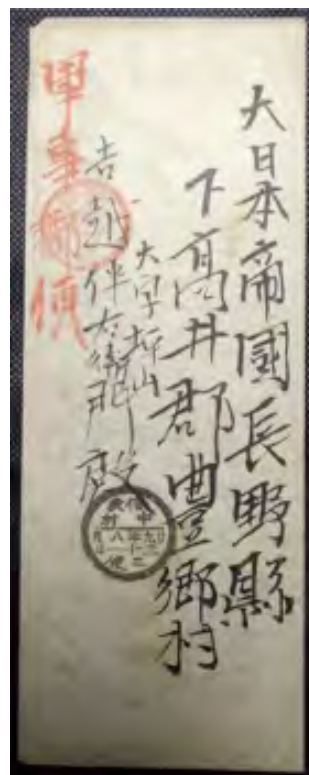 大日本帝國長野縣
下高井郡豊郷村
大字坪山
吉越伴右衛門殿
軍事郵便